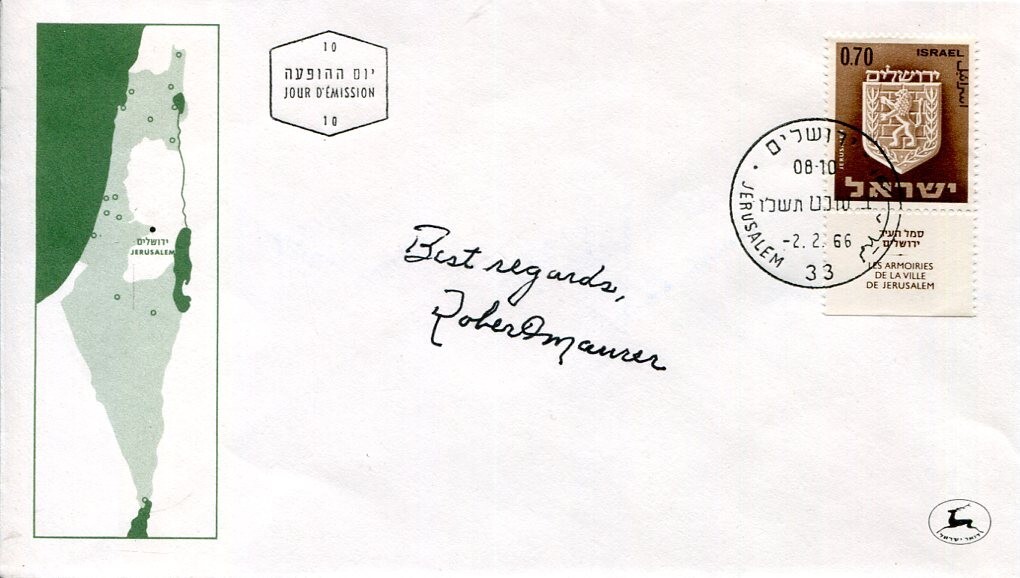 10
יום ההופעה
JOUR D'ÉMISSION
10
0.70
ISRAEL
اسرائيل
ירושלים
JERUSALEM
ישראל
סמל העיר
ירושלים
LES ARMOIRIES
DE LA VILLE
DE JERUSALEM
ירושלים
08-10
תשכ"ו
-2. 2. 66
JERUSALEM
33
ירושלים
JERUSALEM
Best regards,
Robert D Maurer
דואר ישראל